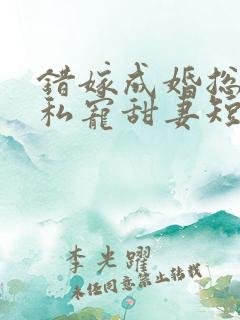 错嫁成婚总
私宠甜妻短
李光躍
未经同意禁止转载